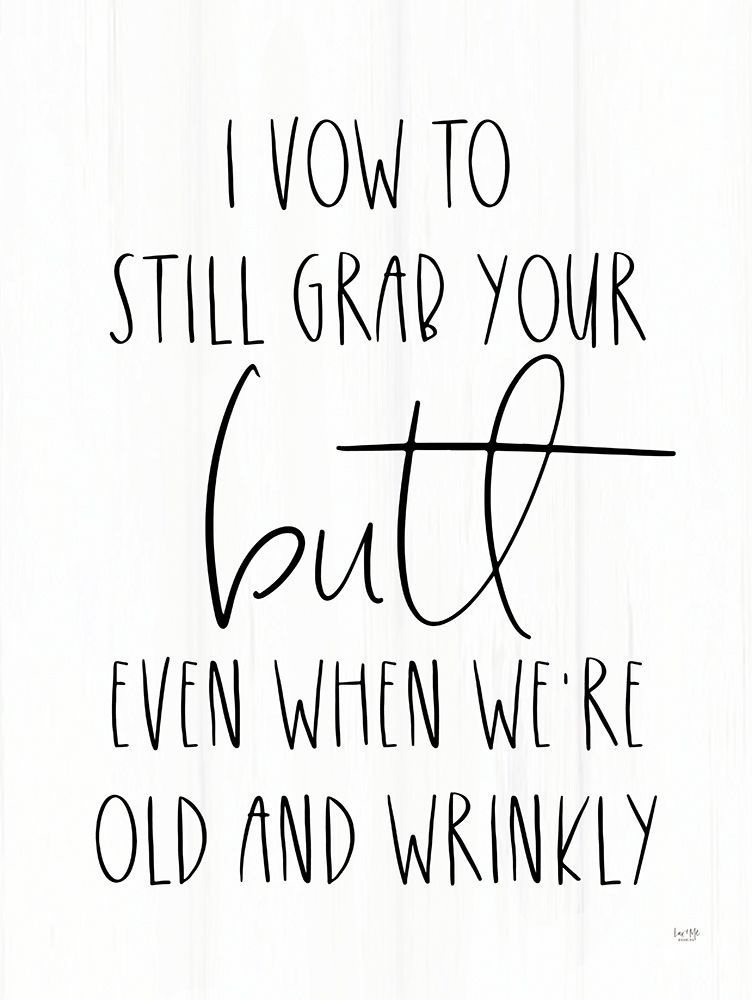 I VOW TO
STILL GRAB YOUR
butt
EVEN WHEN WE'RE
OLD AND WRINKLY